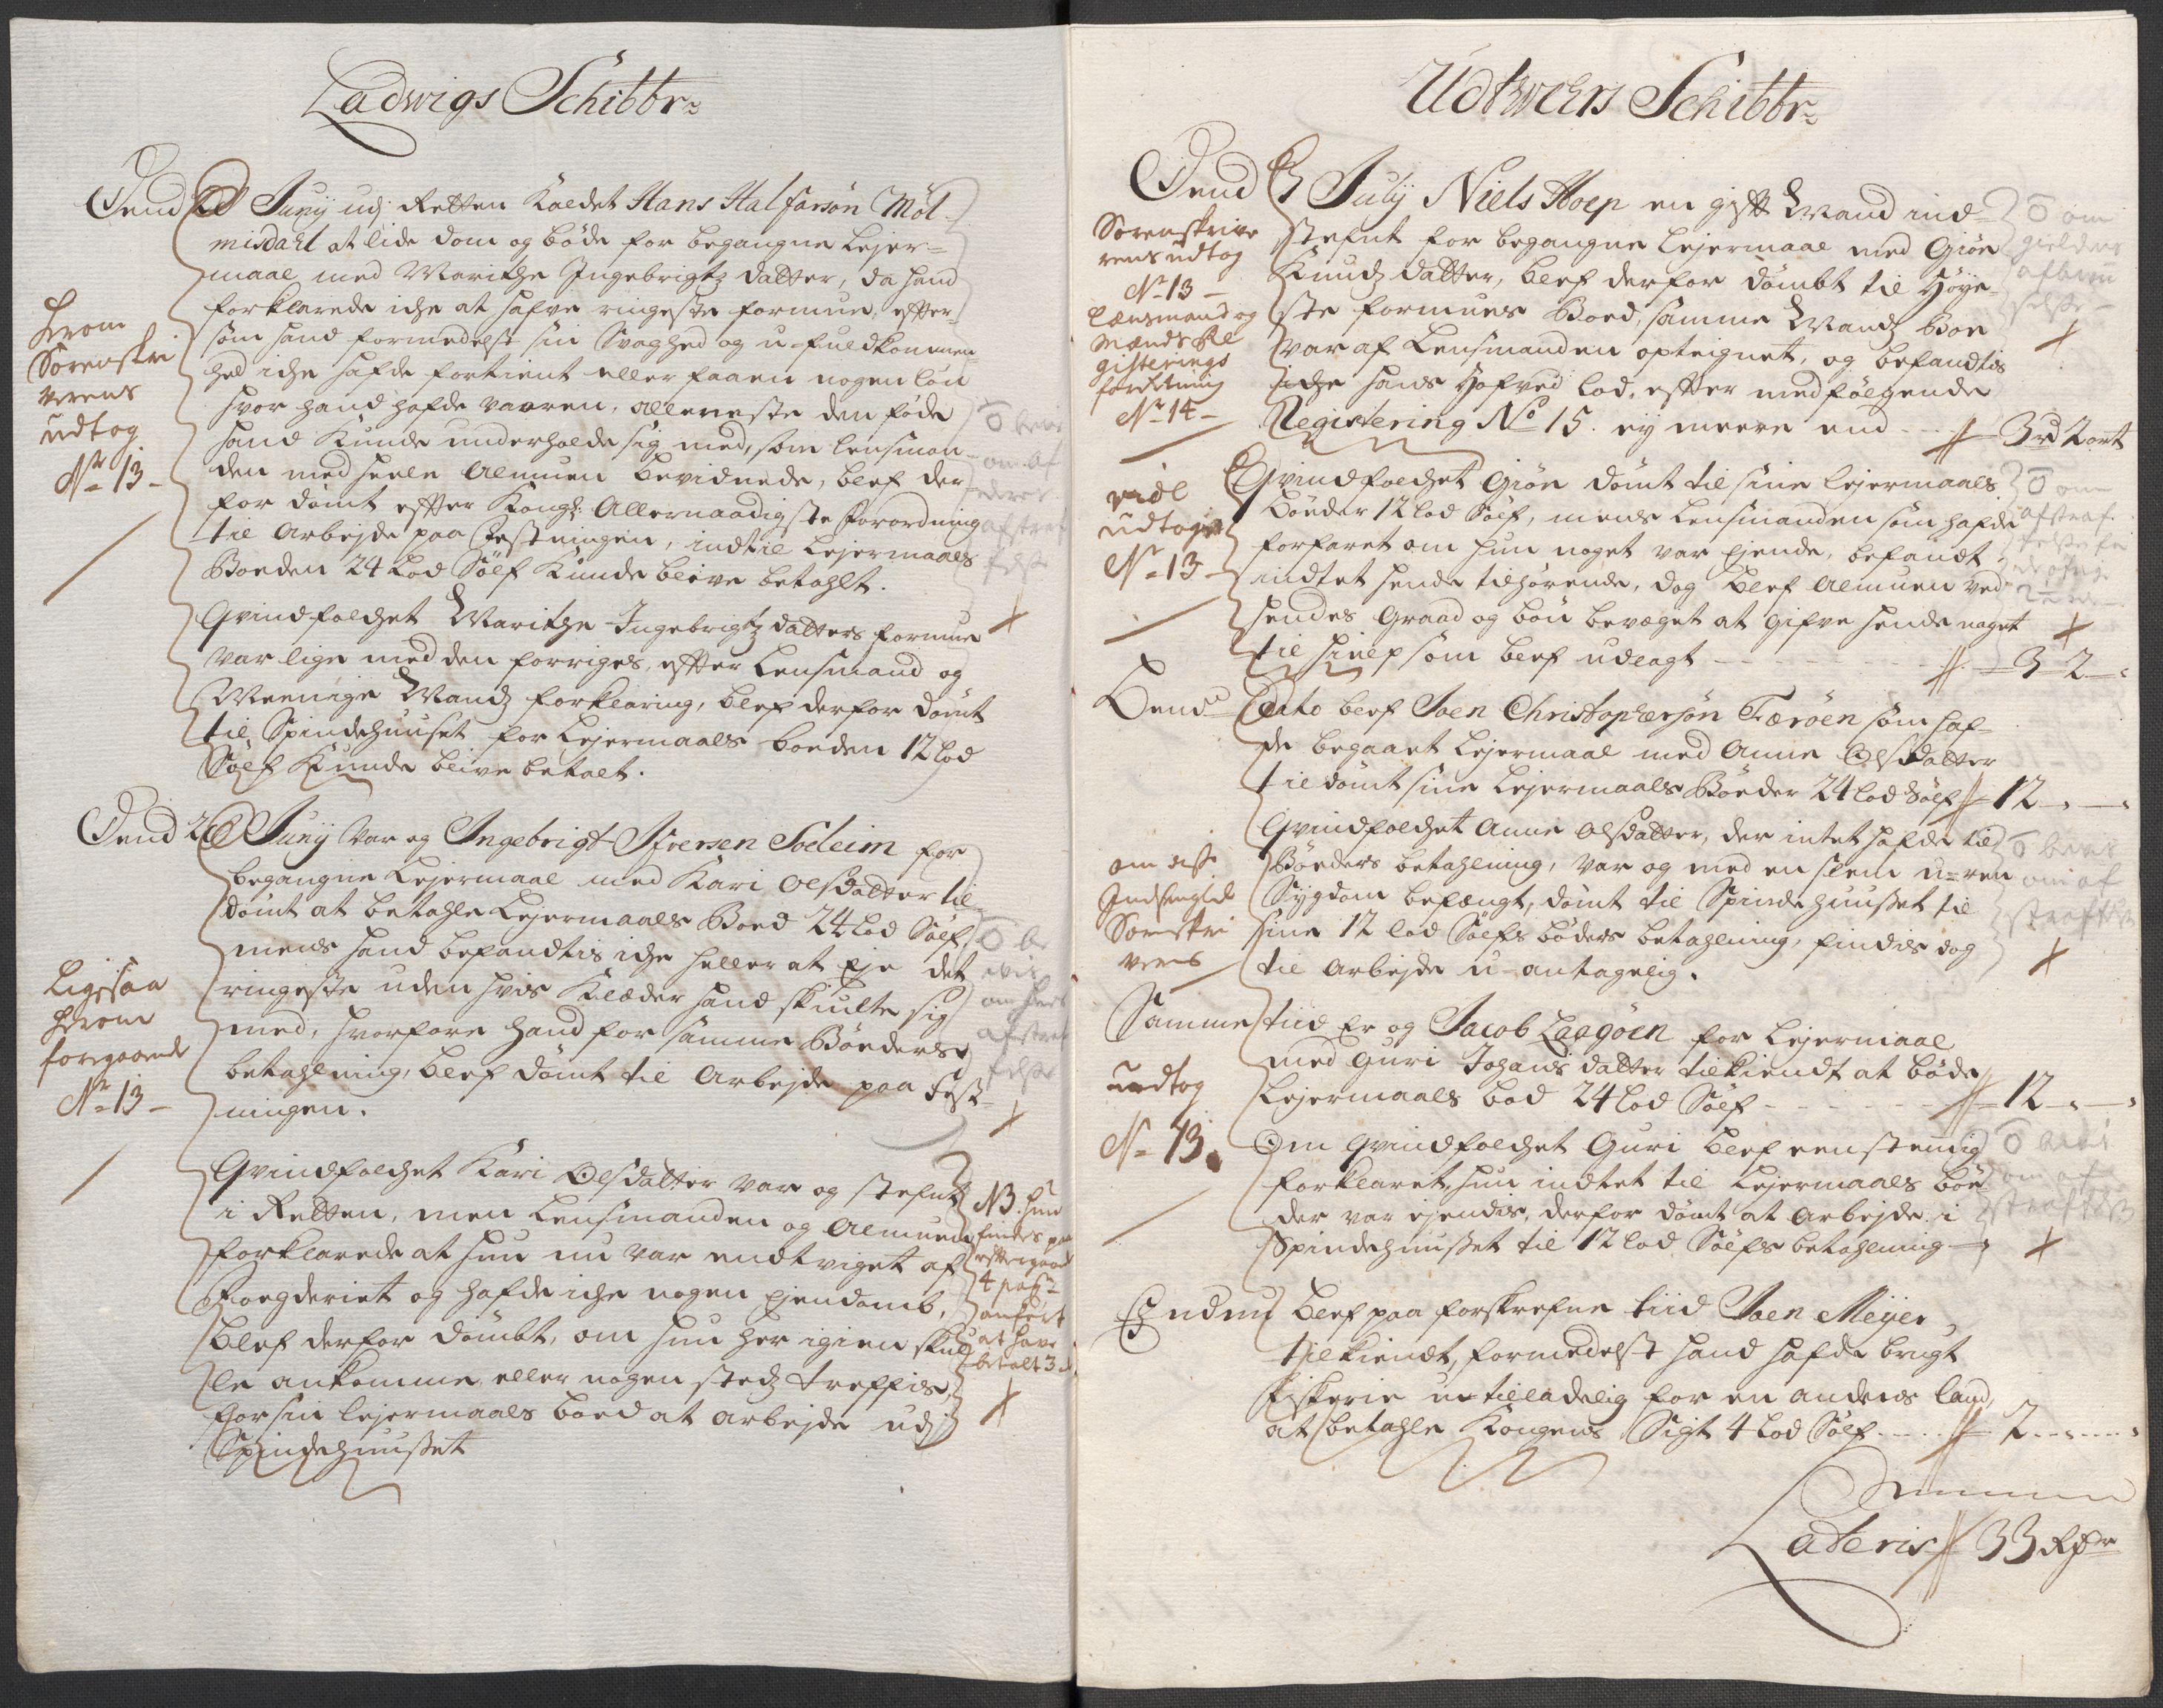 Ladwigs Schibbr:
Dend 22 Junij udj Retten Kaldet Hans Halfarsön Möl-
misdahl at lide dom og böde for begangne Lejer-
maal med Maritche Ingebrigtz datter, da hand
forklarede iche at hafve ringeste formue, effter-
som hand formedelst sin Svaghed og u-fuldkommen-
hed iche hafde fortient eller faaen nogen lön
hvor hand hafde vaaren, alleneste den föde
hand Kunde underholde sig med, som lensman-
den med heele Almuen bevidnede, blef der
for dömt effter Kongl: Allernaadigste forordning
til Arbejde paa Festningen, indtil Lejermaals
Boeden 24 Lod Sölf Kunde blive betahlt.
Herom
Sorenskri
verens
udtog
No 13 -
Qvindfolchet Maritche Ingebrigtz datters formue
var lige med den forriges, effter Lensmand og
Meenige Mandz forklaring, blef derfor dömt
til Spindehuuset for Lejermaals boeden 12 lod
Sölf Kunde blive betalt.
Dend 22 Junij var og Ingebrigt Ifversen Sodeim for
begangne Lejermaal med Kari Olsdatter til-
dömt at betahle Lejermaals Boed 24 Lod Sölf,
mens hand befandtis iche heller at Eje det
ringeste uden hvis Klæder hand skiulte sig
med, hvorfore hand for samme Böeders
betahlning, blef dömt til Arbejde paa Fest-
ningen.
Ligesaa
herom
foregaaende
No 13 -
Qvindfolchet Kari Olsdatter var og stefnt
i Retten, men Lensmanden og Almuen
forklarede at hun nu var undtviget af
Fogderiet og hafde iche nogen Ejendomb,
blef derfor dömbt, om hun her igien skul
le ankomme eller nogen stedz treffis,
for sin lejermaals boed at arbejde udj
Spindehuusset
NB. hun
findes paa
efftergaaende
4 pag:
anfört
at have
betalt 3
Udtwehrs Schibbr:
Dend 3 Julij Niels Hoep en gifft Mand ind-
stefnt for begangne Lejermaal med Giön
Knudz datter, blef derfor dömbt til Höye-
ste formues Boed, samme Mandz Boe
var af Lensmanden opteignet, og befandtis
iche hans Hofved lod, effter medfölgende
Registering No 15. ej meere end - - 3 rd 2 ort
Sorenskrive
rens udtog
No 13 -
Lensmand og
Mænds Re
gisterings
forretning
No 14 -
Qvindfolchet Giön dömt til sine lejermaals
Böeder 12 lod Sölf, mens Lensmanden som hafde
forfaret om hun noget var Ejende, befandt
indtet hende tilhörende, dog blef Almuen ved
hendes Graad og bön bevæget at gifve hende noget
til hielp som blef udlagt - - - 3 - 2 -
vide
udtoget
No 13 -
Dend Dito blef Joen Christophersön Færöen som haf-
de begaaet Lejermaal med Anne Olsdatter
tildömt sine Lejermaals Böeder 24 lod Sölf 12 - -
Qvindfolchet Anne Olsdatter, der intet hafde til
Böeders betahlning, var og med en slem u-ren
Sygdom befængt, dömt til Spindehuusset til
sine 12 lod Sölfs böders betahlning, findis dog
til Arbejde u-antagelig.
om disse
Indhengild
Sorenskri
verens
Samme tiid Er og Jacob Laagöen for Lejermaal
med Guri Johans datter tilkiendt at böde
Lejermaals bod 24 lod Sölf - - - 12 - -
Om Qvindfolchet Guri blef eenstemig
forklaret, hun indtet til Lejermaals bö
der var ejendes, derfor dömt at Arbejde i
Spindehuusset til 12 lod Sölfs betahlning
udtog
No 13.
Endnu blef paa forskrefne tiid Joen Meyer,
tilkiendt, formedelst hand hafde brugt
fiskerie u-tilladelig for en andens land,
at betahle Kongens Sigt 4 lod Sölf - - 2 - -
Summa
Lateris 33 Rdr